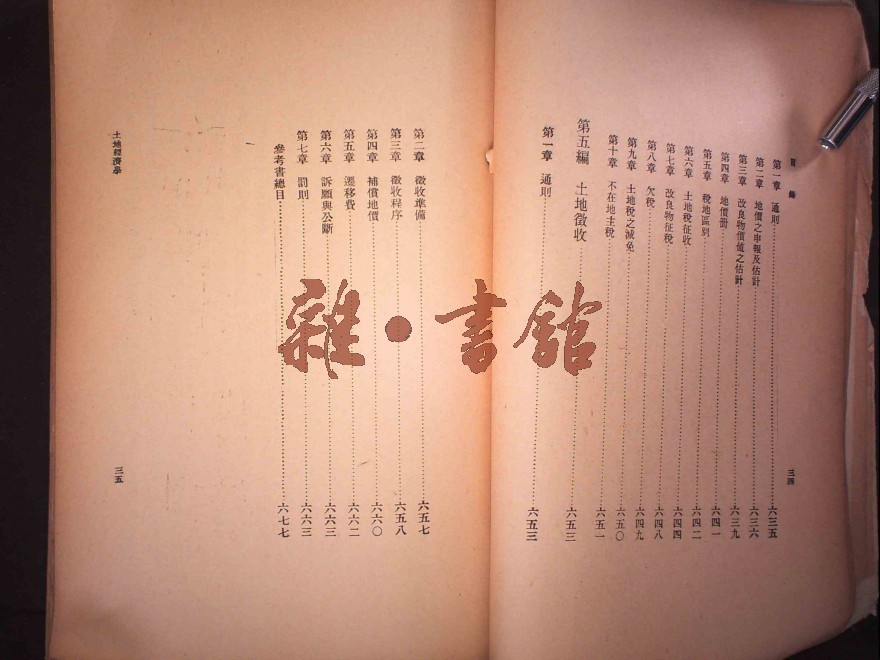 目錄
第一章 通則 六三五
第二章 地價之申報及估計 六三六
第三章 改良物價值之估計 六三九
第四章 地價冊 六四一
第五章 稅地區別 六四二
第六章 土地稅征收 六四四
第七章 改良物征稅 六四八
第八章 欠稅 六四九
第九章 土地稅之減免 六五〇
第十章 不在地主稅 六五一
第五編 土地徵收 六五三
第一章 通則 六五三
三四
第二章 徵收準備 六五七
第三章 徵收程序 六五八
第四章 補償地價 六六〇
第五章 遷移費 六六二
第六章 訴願與公斷 六六三
第七章 罰則 六六三
參考書總目 六七七
土地經濟學
三五
雜·書館